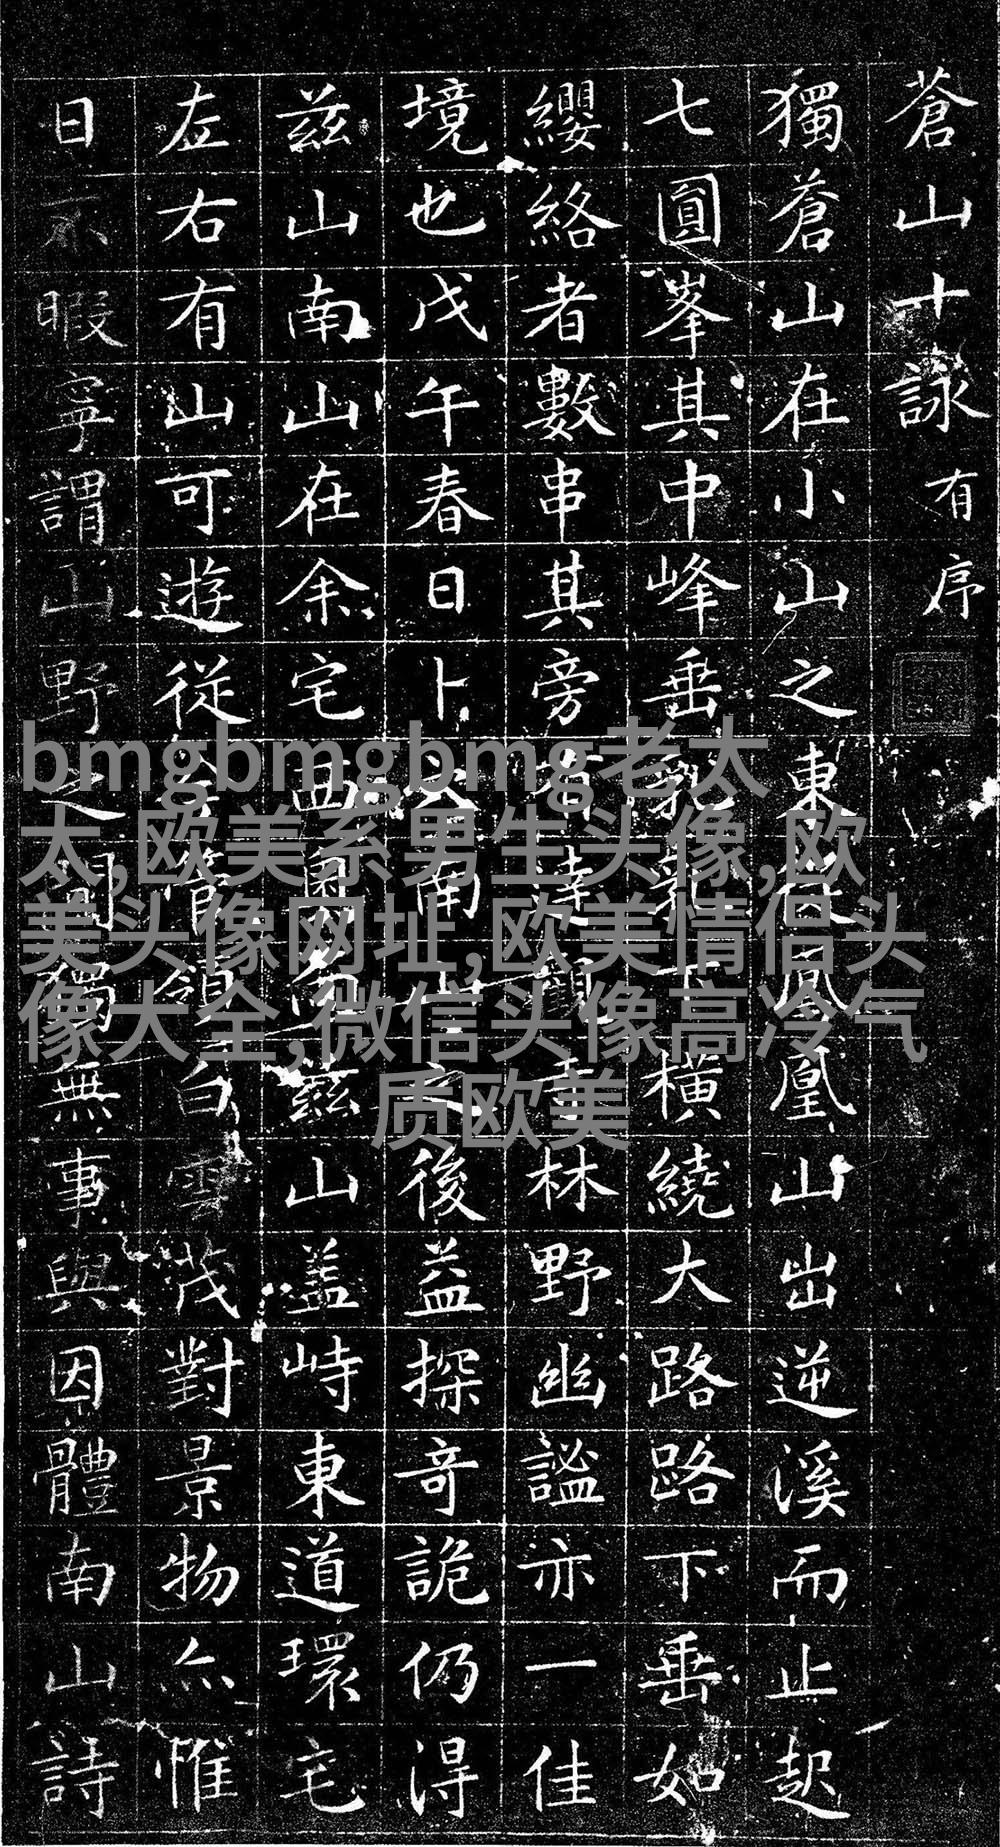 蒼山十詠有序
獨蒼山在小山之東從鳳凰山出逆溪而止起
七圓峯其中峰垂乳龍下橫繞大路路下垂如
纓絡者數串其旁右達觀音林野幽謐亦一佳
境也戊午春日卜南山之後益探奇詭仍得
茲山南山在余宅西園而茲山盖峙東道環宅
左右有山可遊從會管領白雲茂對景物亦惟
日不暇寧謂山野之間獨無事與因體南山詩
bmgbmgbmg老太
太,欧美系男生头像,欧
美头像网址,欧美情侣头
像大全,微信头像高冷气
质欧美